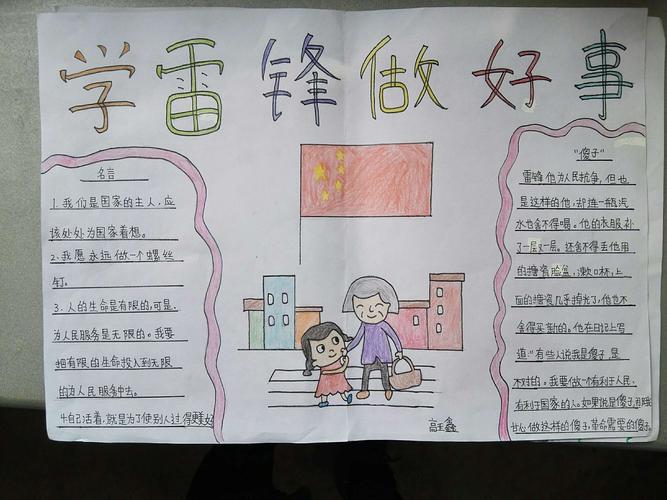 学雷锋做好事
名言
1、我们是国家的主人,应
该处处为国家着想。
2、我愿永远做一个螺丝
钉。
3、人的生命是有限的,可是,
为人民服务是无限的。我要
把有限的生命投入到无限
的为人民服务中去。
4自己活着,就是为了使别人过得更美好
"傻子"
雷锋他为人民抗争,但也
是这样的他,却连一瓶汽
水也舍不得喝。他的衣服补
了一层又一层。还舍不得丢他用
的搪瓷脸盆,漱口杯,上
面的搪瓷几乎掉光了,他也不
舍得买新的。他在日记上写
道:"有些人说我是傻子 是
不对的。我要做一个有利于人民、
有利于国家的人。如果说是傻子,
甘心做这样的傻子,革命需要的傻子。
高玉鑫